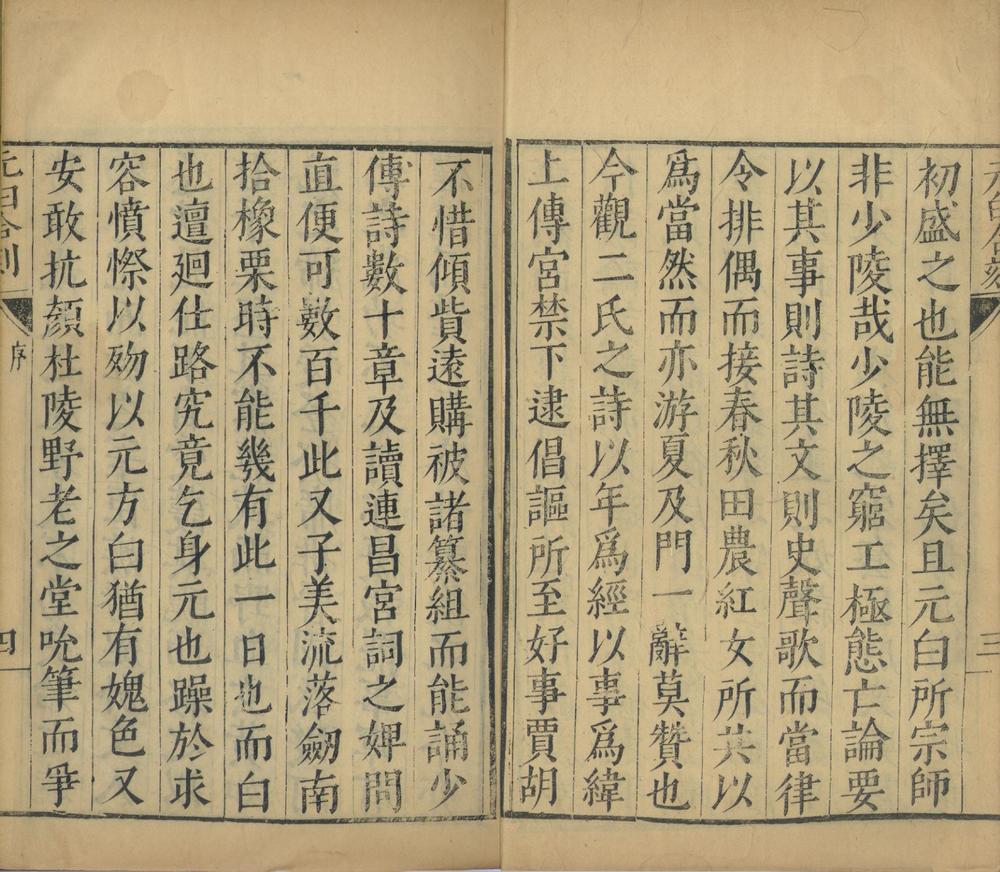 初盛之也能無擇矣且元白所宗師
非少陵哉少陵之窮工極態亡論要
以其事則詩其文則史聲歌而當律
令排偶而接春秋田農紅女所共以
爲當然而亦游夏及門一辭莫贊也
今觀二氏之詩以年爲經以事爲緯
上傳宮禁下逮倡謳所至好事賈胡
三
不惜傾貲遠購被諸纂組而能誦少
傳詩數十章及讀連昌宮詞之婢問
直便可數百千此又子美流落劒南
拾橡栗時不能幾有此一日也而白
也邅廻仕路究竟乞身元也躁於求
容憤憏以殁以元方白猶有媿色又
安敢抗顏杜陵野老之堂吮筆而爭
序
四